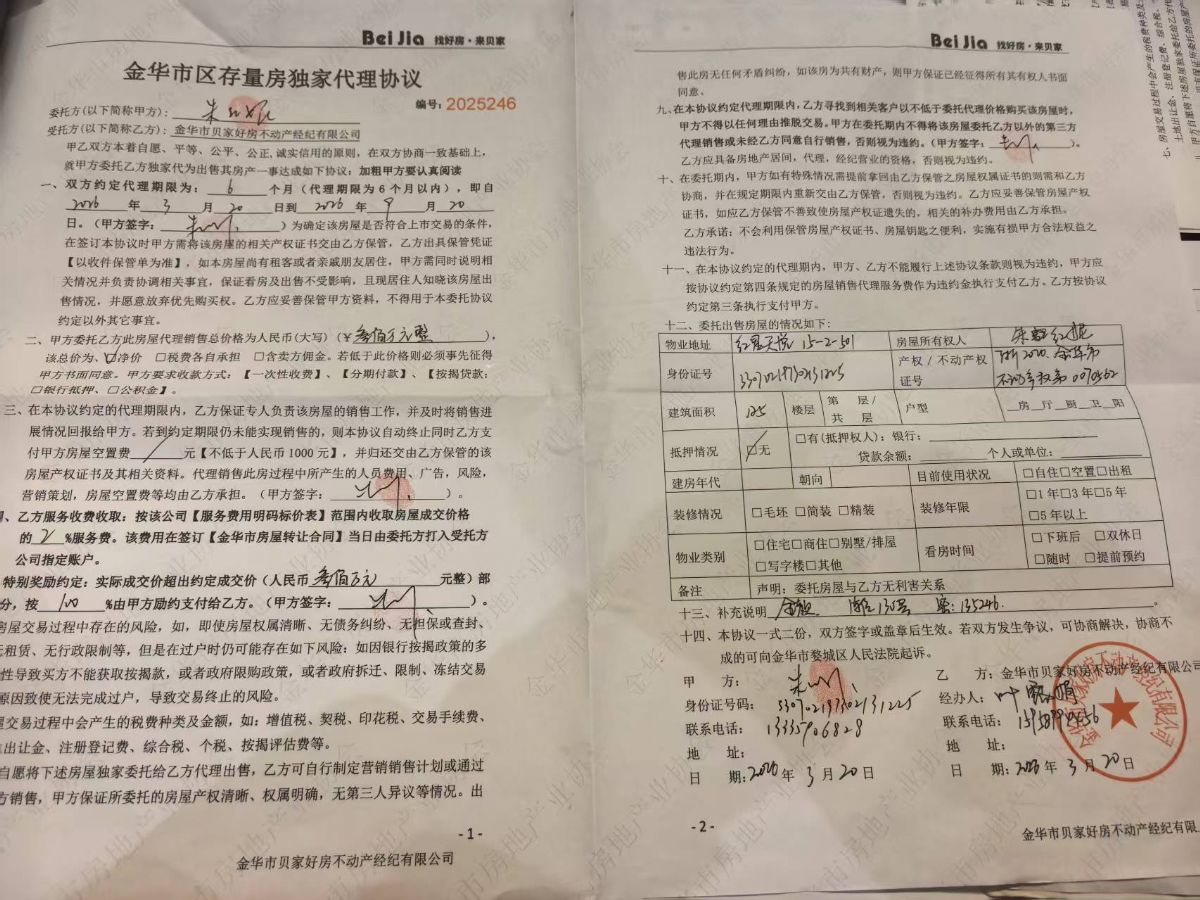 Bei Jia 找好房·来贝家
金华市区存量房独家代理协议
编号：2025246
委托方(以下简称甲方)：
受托方(以下简称乙方)：金华市贝家好房不动产经纪有限公司
甲乙双方本着自愿、平等、公平、公正,诚实信用的原则，在双方协商一致基础上，
就甲方委托乙方独家代为出售其房产一事达成如下协议：加粗甲方要认真阅读
一、双方约定代理期限为： 6 个月（代理期限为6个月以内），即自
2026 年 3 月 20 日到 2026 年 9 月 20
日。（甲方签字： ）为确定该房屋是否符合上市交易的条件，
在签订本协议时甲方需将该房屋的相关产权证书交由乙方保管，乙方出具保管凭证
【以收件保管单为准】，如本房屋尚有租客或者亲戚朋友居住，甲方需同时说明相
关情况并负责协调相关事宜，保证看房及出售不受影响，且现居住人知晓该房屋出
售情况，并愿意放弃优先购买权。乙方应妥善保管甲方资料，不得用于本委托协议
约定以外其它事宜。
二、甲方委托乙方此房屋代理销售总价格为人民币(大写)（¥ 叁佰万元整 ），
该总价为、☑净价 □税费各自承担 □含卖方佣金。若低于此价格则必须事先征得
甲方书面同意。甲方要求收款方式：【一次性收费】、【分期付款】、【按揭贷款：
□银行抵押、□公积金】。
三、在本协议约定的代理期限内，乙方保证专人负责该房屋的销售工作，并及时将销售进
展情况回报给甲方。若到约定期限仍未能实现销售的，则本协议自动终止同时乙方支
付甲方房屋空置费 / 元【不低于人民币1000元】，并归还交由乙方保管的该
房屋产权证书及其相关资料。代理销售此房过程中所产生的人员费用、广告，风险，
营销策划，房屋空置费等均由乙方承担。（甲方签字： ）。
、乙方服务收费收取：按该公司【服务费用明码标价表】范围内收取房屋成交价格
的 2 %服务费。该费用在签订【金华市房屋转让合同】当日由委托方打入受托方
公司指定账户。
特别奖励约定：实际成交价超出约定成交价（人民币 叁佰万元 元整）部
分，按 100 %由甲方励约支付给乙方。（甲方签字： ）。
房屋交易过程中存在的风险，如，即使房屋权属清晰、无债务纠纷、无担保或查封、
无租赁、无行政限制等，但是在过户时仍可能存在如下风险：如因银行按揭政策的多
性导致买方不能获取按揭款，或者政府限购政策，或者政府拆迁、限制、冻结交易
原因致使无法完成过户，导致交易终止的风险。
屋交易过程中会产生的税费种类及金额，如：增值税、契税、印花税、交易手续费、
出让金、注册登记费、综合税、个税、按揭评估费等。
自愿将下述房屋独家委托给乙方代理出售，乙方可自行制定营销销售计划或通过
方销售，甲方保证所委托的房屋产权清晰、权属明确，无第三人异议等情况。出
-1-
金华市贝家好房不动产经纪有限公司
Bei Jia 找好房·来贝家
售此房无任何矛盾纠纷，如该房为共有财产，则甲方保证已经征得所有其有权人书面
同意。
九、在本协议约定代理期限内，乙方寻找到相关客户以不低于委托代理价格购买该房屋时，
甲方不得以任何理由推脱交易。甲方在委托期内不得将该房屋委托乙方以外的第三方
代理销售或未经乙方同意自行销售，否则视为违约。（甲方签字： ）
乙方应具备房地产居间，代理，经纪营业的资格，否则视为违约。
十、在委托期内，甲方如有特殊情况需提前拿回由乙方保管之房屋权属证书的则需和乙方
协商，并在规定期限内重新交由乙方保管，否则视为违约。乙方应妥善保管房屋产权
证书，如应乙方保管不善致使房屋产权证遗失的，相关的补办费用由乙方承担。
乙方承诺：不会利用保管房屋产权证书、房屋钥匙之便利，实施有损甲方合法权益之
违法行为。
十一、在本协议约定的代理期内，甲方、乙方不能履行上述协议条款则视为违约，甲方应
按协议约定第四条规定的房屋销售代理服务费作为违约金执行支付乙方。乙方按协议
约定第三条执行支付甲方。
十二、委托出售房屋的情况如下：
物业地址 红星天悦 15-2-501 房屋所有权人
身份证号 产权/不动产权证号 浙2020 金华市不动产权第0070562
建筑面积 125 楼层 第 层/共 层 户型 _房_厅_厨_卫_阳
抵押情况 ☑无 □有(抵押权人)：银行：
贷款余额： 个人或单位：
建房年代 朝向 目前使用状况 □自住□空置□出租
装修情况 □毛坯 □简装 □精装 装修年限 □1年□3年□5年
□5年以上
物业类别 □住宅□商住□别墅/排屋 看房时间 □下班后 □双休日
□写字楼□其他 □随时 □提前预约
备注 声明：委托房屋与乙方无利害关系
十三、补充说明
十四、本协议一式二份，双方签字或盖章后生效。若双方发生争议，可协商解决，协商不
成的可向金华市婺城区人民法院起诉。
甲 方： 乙 方：金华市贝家好房不动产经纪有限公司
身份证号码：330702197302131225 经办人：
联系电话：13335906828 联系电话：
地 址： 地 址：
日 期：2026年 3月20日 日 期：2026年 3月20日
-2-
金华市贝家好房不动产经纪有限